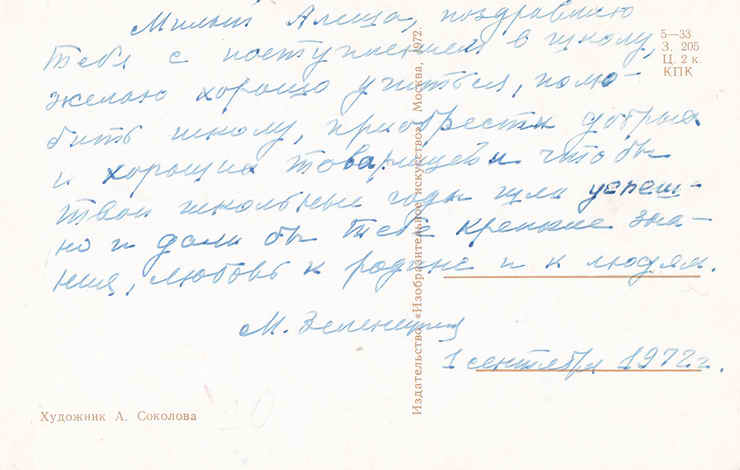 Милый Алеша, поздравляю
тебя с поступлением в школу,
желаю хорошо учиться, полю-
бить школу, приобрести добрых
и хороших товарищей и чтобы
твои школьные годы шли успеш-
но и дали бы тебе крепкие зна-
ния, любовь к родине и к людям.
М.
1 сентября 1972 г.
5—33
З. 205
Ц. 2 к.
КПК
Издательство «Изобразительное искусство». Москва, 1972.
Художник А. Соколова